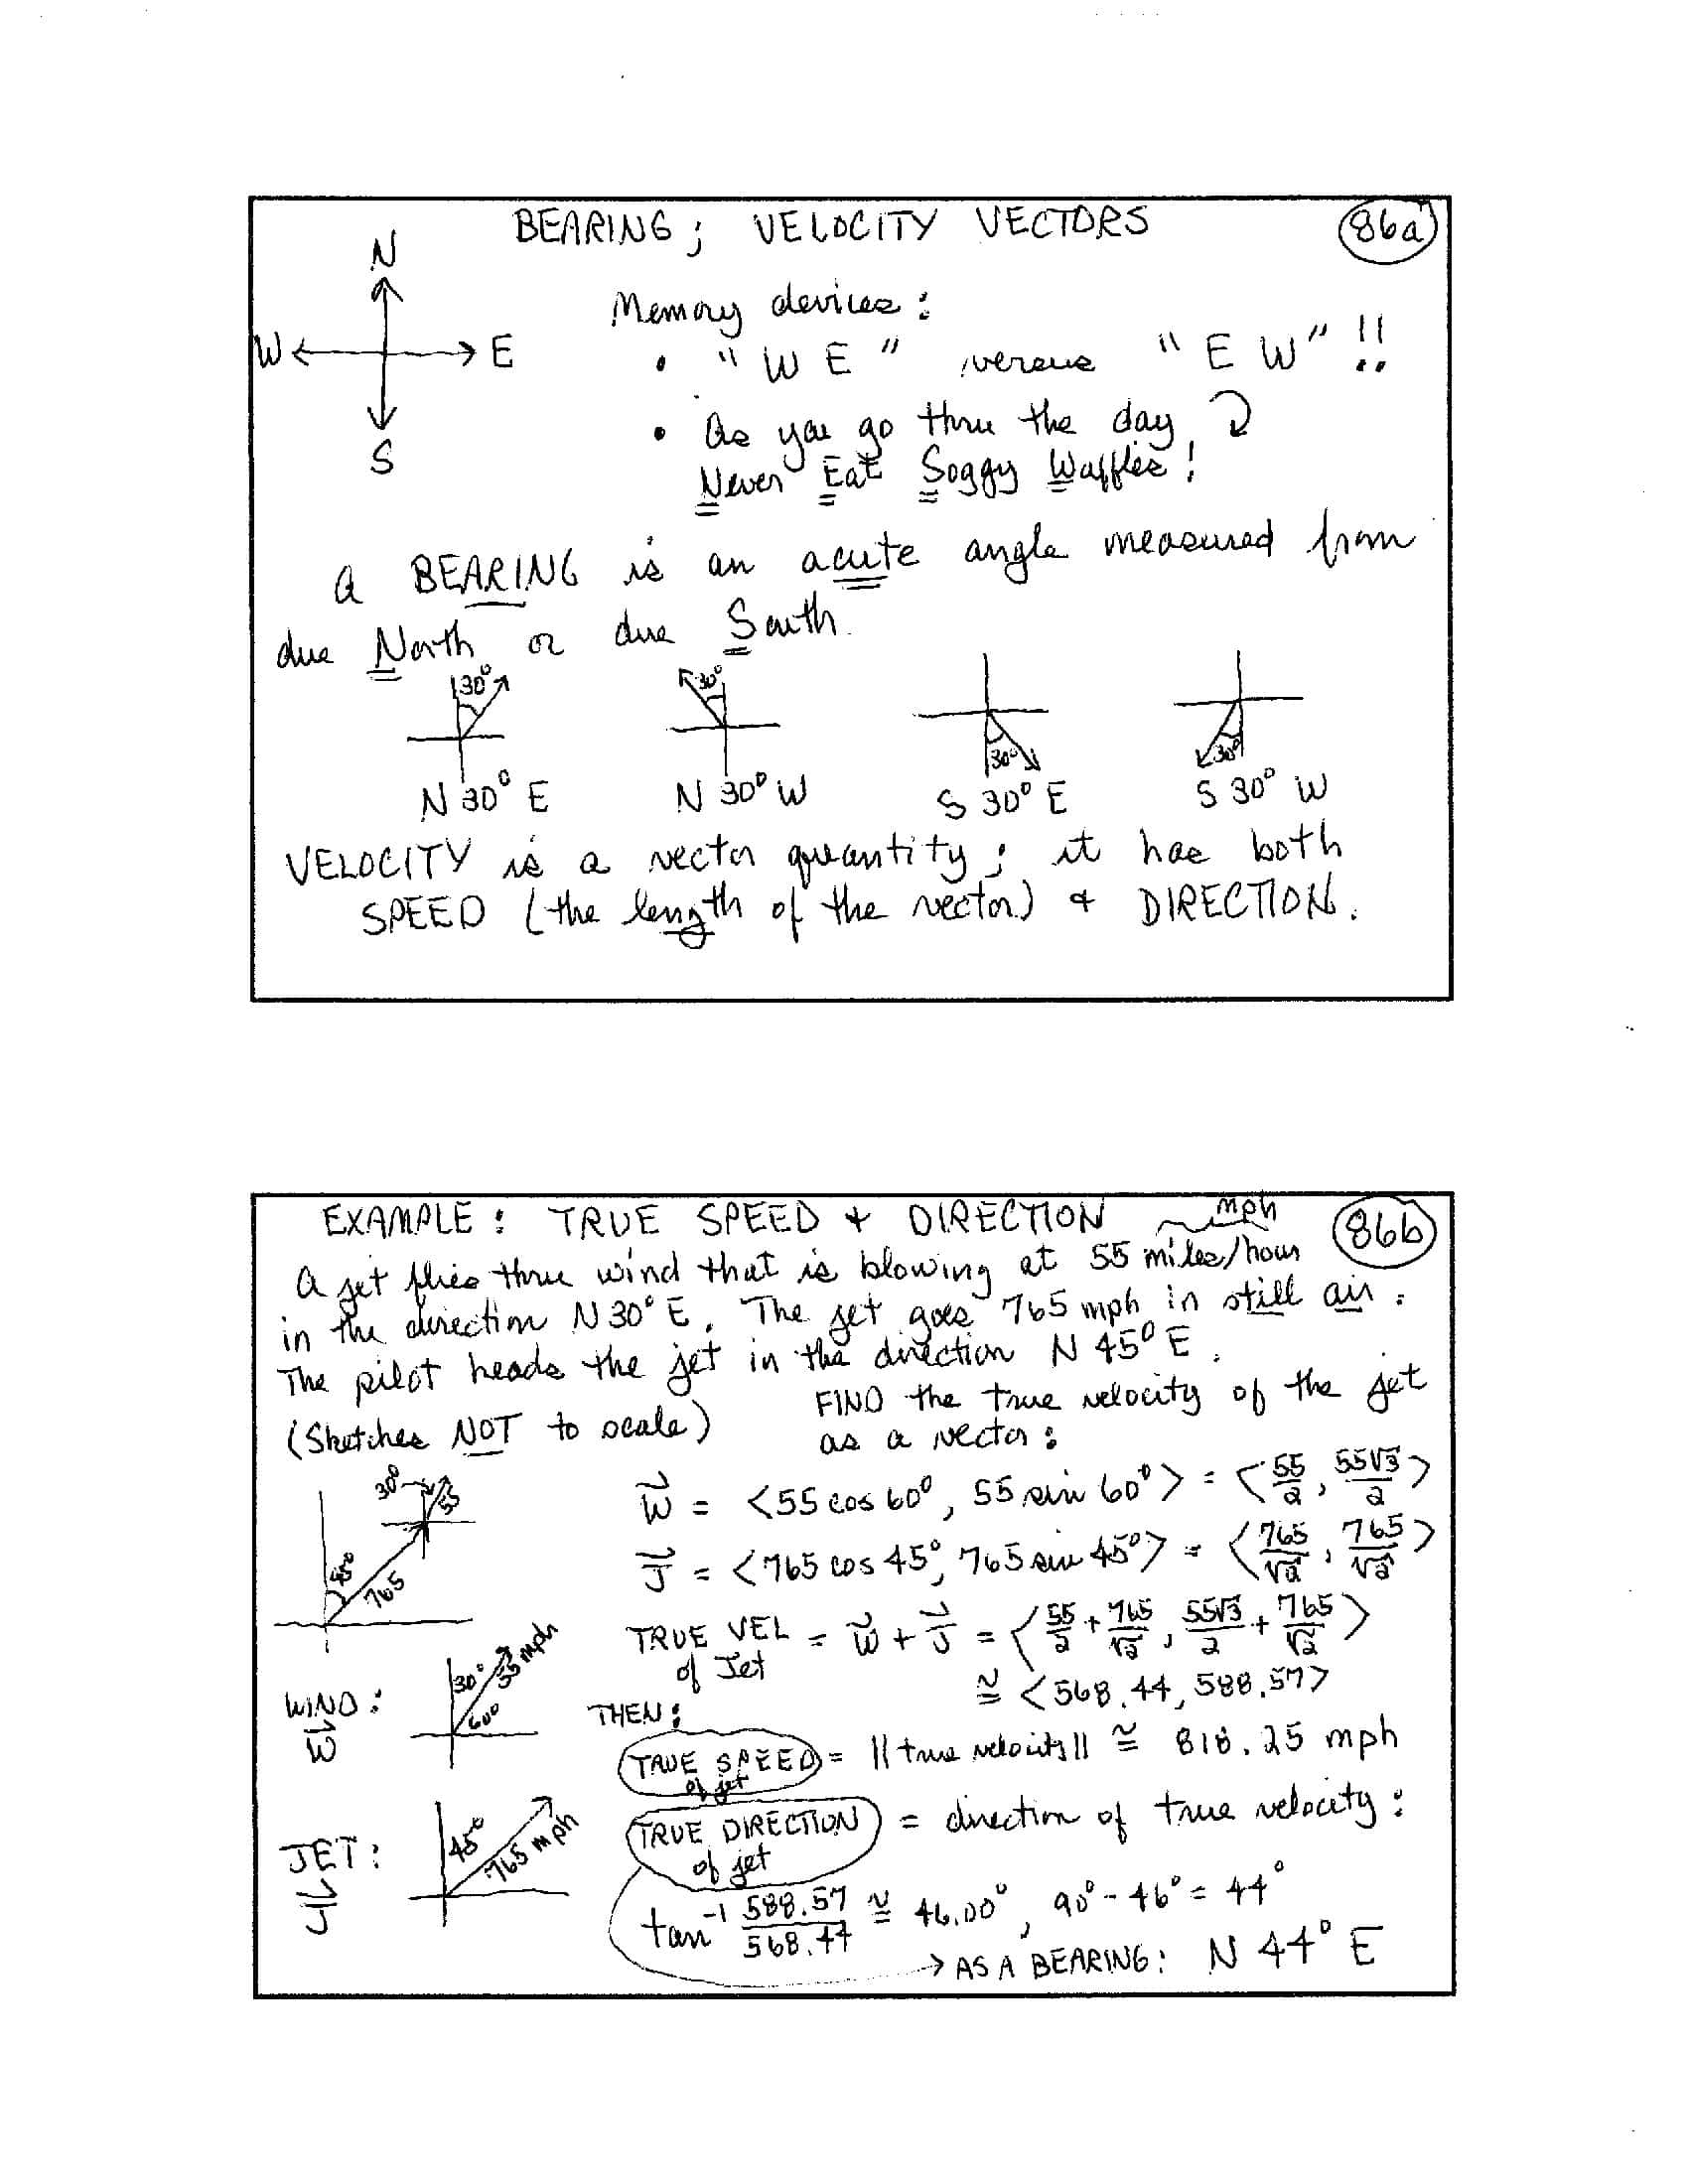 BEARING; VELOCITY VECTORS
86a
N
W E
S
Memory devices:
• "W E" versus "E W"!!
• As you go thru the day
Never Eat Soggy Waffles!
A BEARING is an acute angle measured from
due North or due South.
30° 30° 30° 30°
N 30° E N 30° W S 30° E S 30° W
VELOCITY is a vector quantity; it has both
SPEED (the length of the vector) & DIRECTION.
EXAMPLE: TRUE SPEED & DIRECTION mph
86b
A jet flies thru wind that is blowing at 55 miles/hour
in the direction N 30° E. The jet goes 765 mph in still air.
The pilot heads the jet in the direction N 45° E.
(Sketches NOT to scale) FIND the true velocity of the jet
as a vector:
30° 55
45° 765
W⃗ = <55 cos 60°, 55 sin 60°> = <55/2, 55√3/2>
J⃗ = <765 cos 45°, 765 sin 45°> = <765/√2, 765/√2>
TRUE VEL of Jet = W⃗ + J⃗ = <55/2 + 765/√2, 55√3/2 + 765/√2>
≅ <568.44, 588.57>
WIND: W⃗
30° 55 mph
60°
THEN:
TRUE SPEED of jet = ||true velocity|| ≅ 818.25 mph
JET: J⃗
45° 765 mph
TRUE DIRECTION of jet = direction of true velocity:
tan⁻¹ 588.57/568.44 ≅ 46.00°, 90° - 46° = 44°
→ AS A BEARING: N 44° E